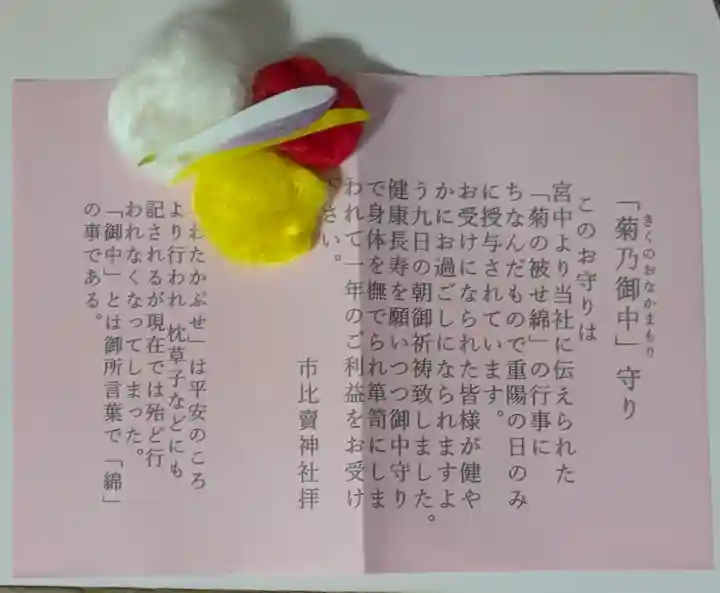 「菊乃御中」守り
きくのおなかまもり
このお守りは
宮中より当社に伝えられた
「菊の被せ綿」の行事に
ちなんだもので重陽の日のみ
に授与されています。
お受けになられた皆様が健や
かにお過ごしになられますよ
う九日の朝御祈祷致しました。
健康長寿を願いつつ御中守り
で身体を撫でられ箪笥にしま
われて一年のご利益をお受け
さい。
市比賣神社拝
わたかぶせ」は平安のころ
より行われ、枕草子などにも
記されるが現在では殆ど行
われなくなってしまった。
「御中」とは御所言葉で「綿」
の事である。